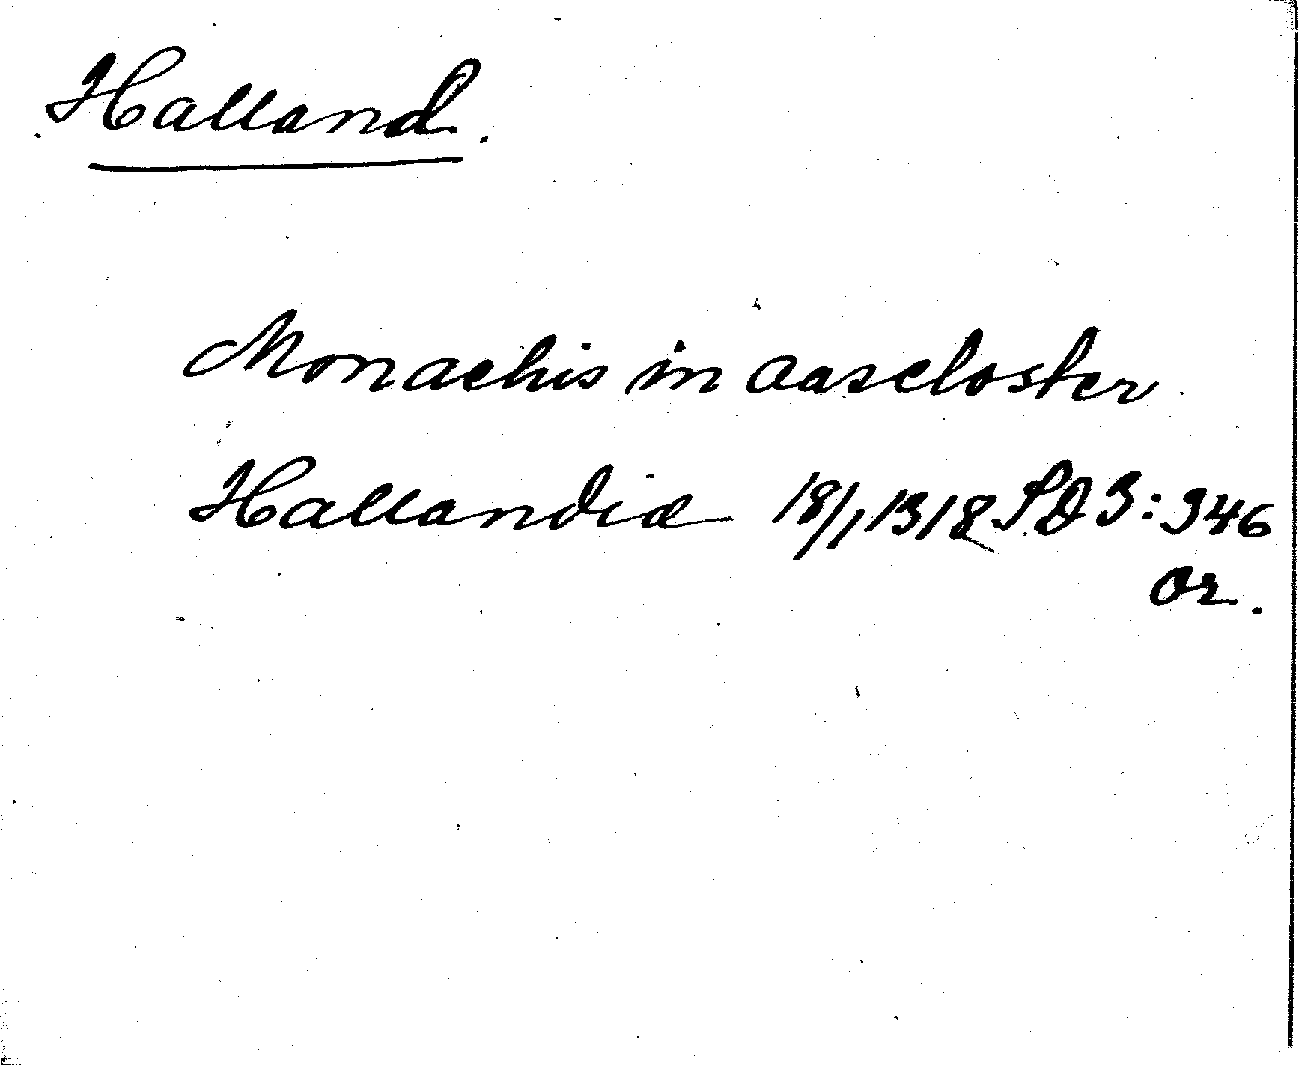 Halland.
Monachis in aascloster
Hallandiæ 18/1 1318 SD 3: 346
or.